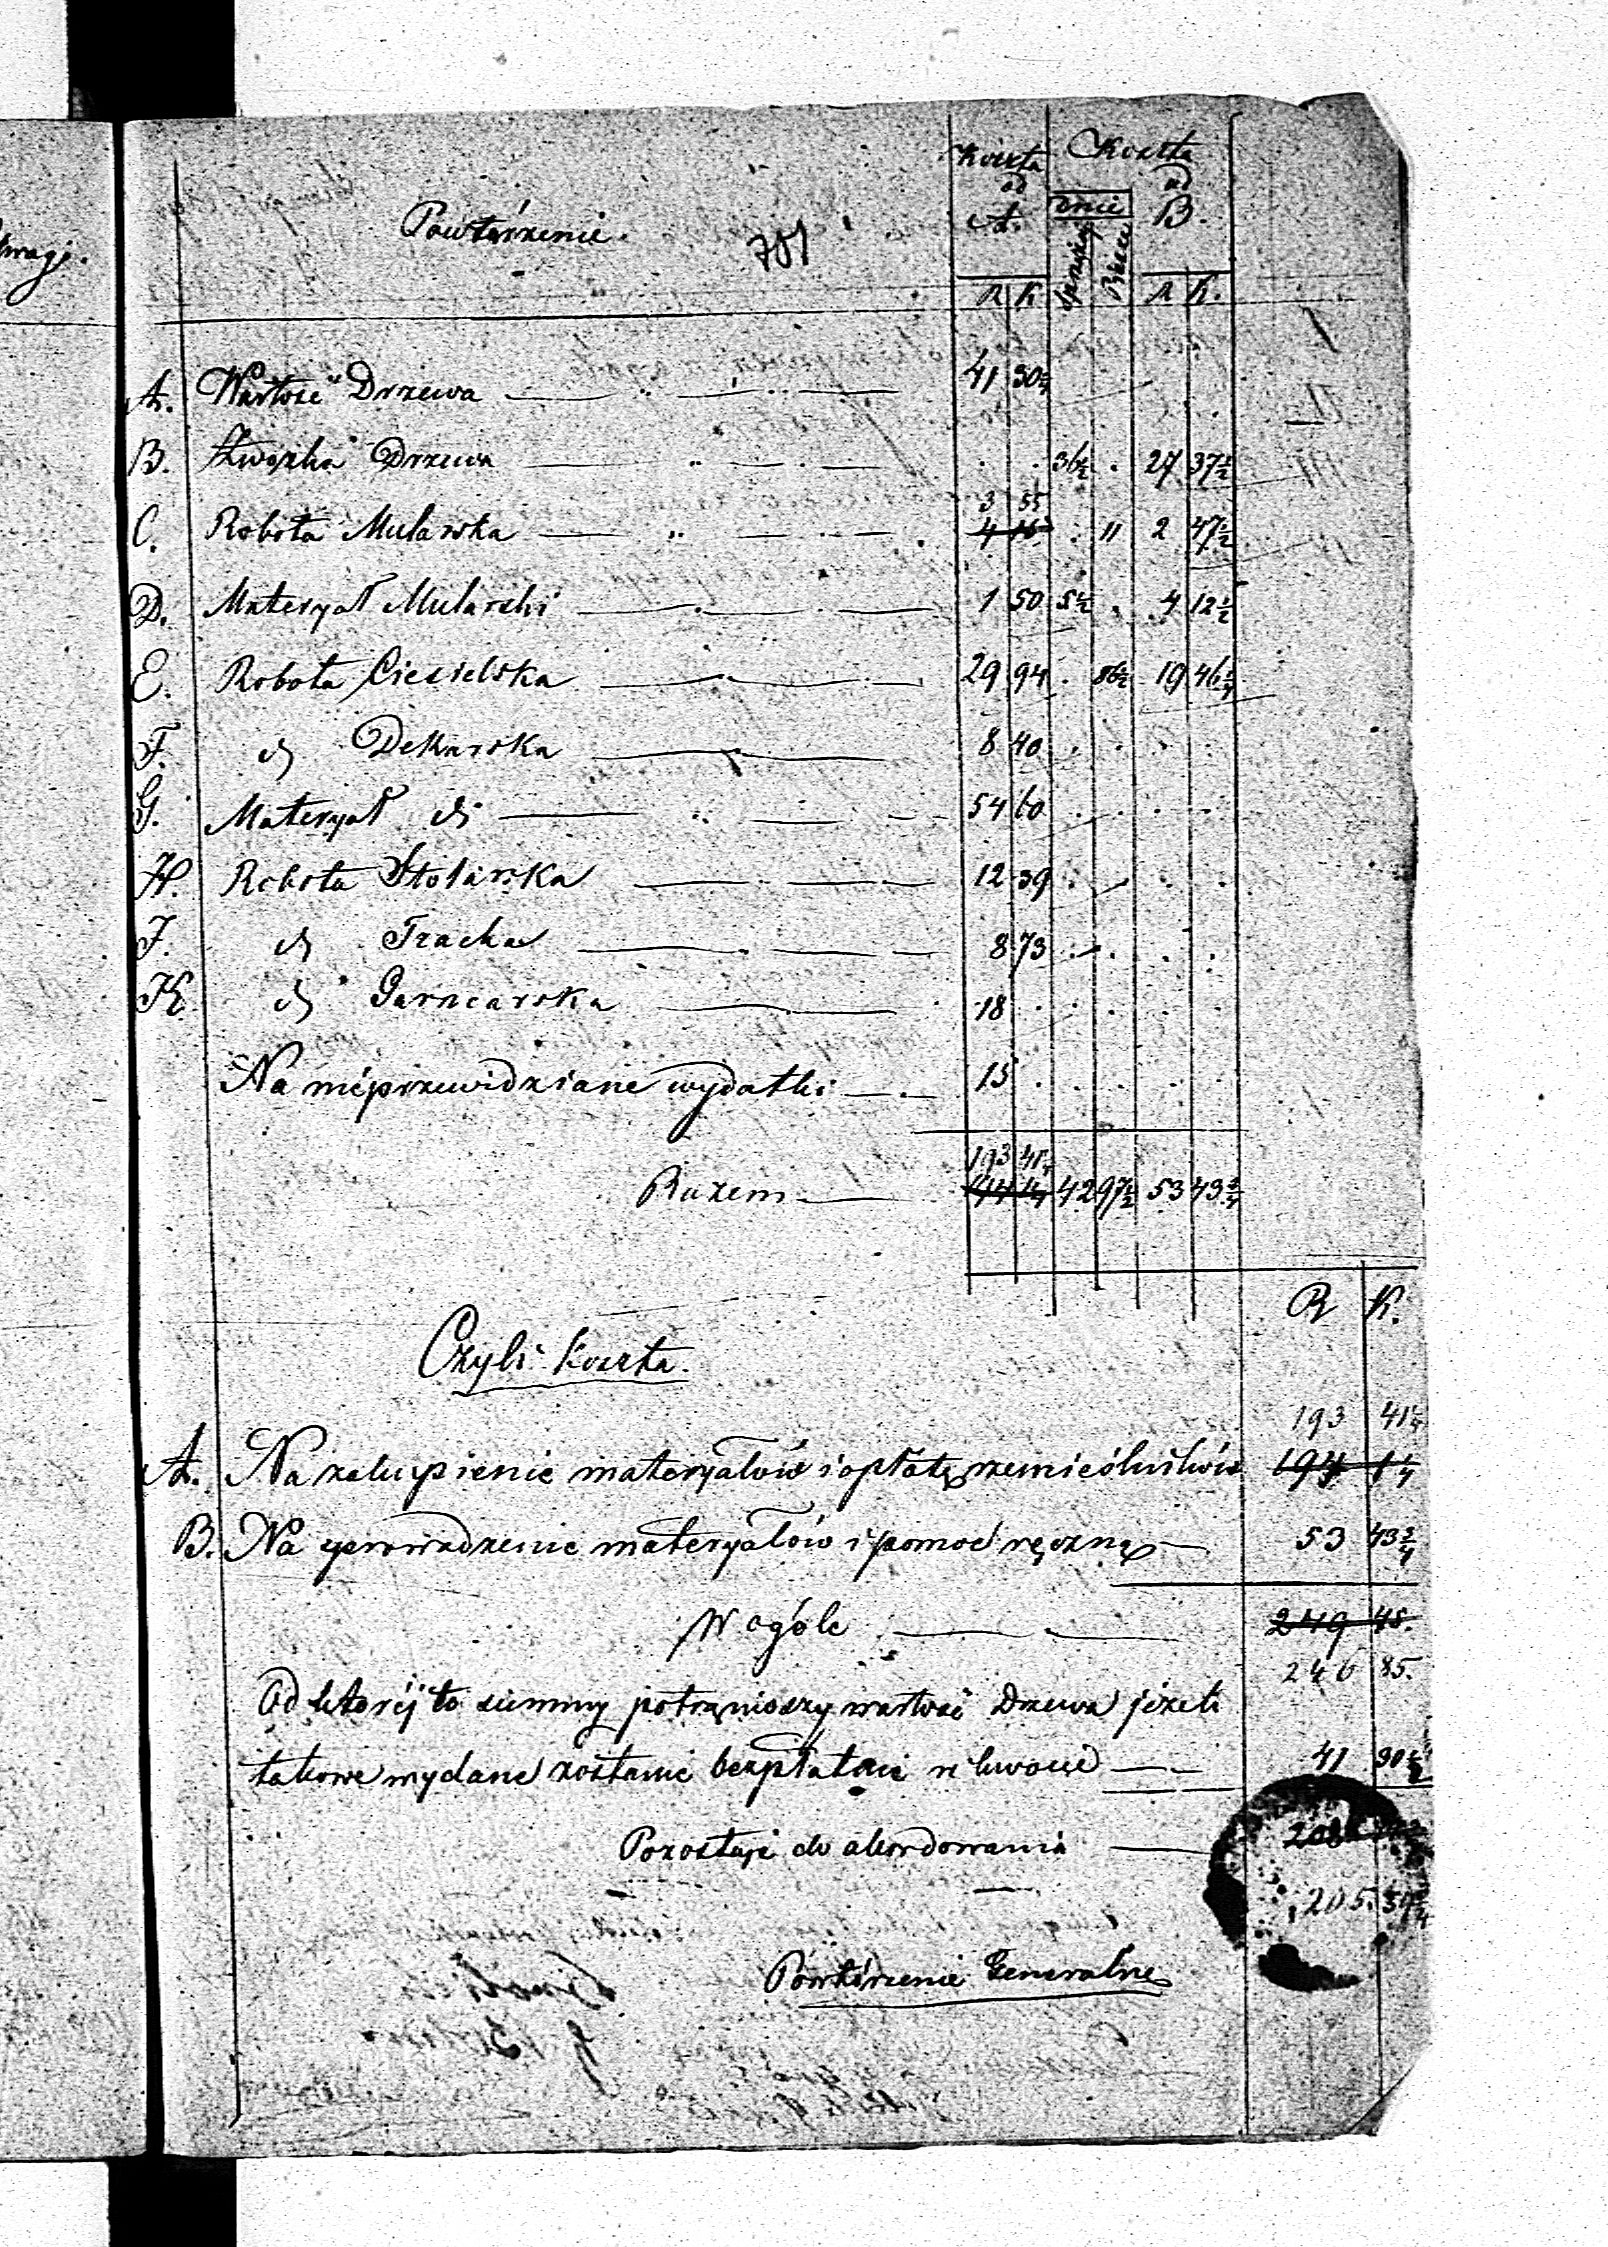 Uwagi.
Koszta Koszta
ad ad
Powtórzenie. 701 A. Dnie B.
Sprzężaj Piesze
R K R K.
A. Wartość Drzewa 41 30½
B. Zwózka Drzewa 36½ 27 37½
3 55
C. Robota Mularska 4 2 47½
D. Materyał Mularski 1 50 5½ 4 12½
E. Robota Ciesielska 29 94 86½ 19 46¼
F. dj Dekarska 8 40
G. Materyał dj 54 60
H. Robota Stolarska 12 39
J. dj Tracka 8 73
K dj Garncarska 18
Na nieprzewidziane wydatki 15
193 41¼
Razem 42 97½ 53 43¾
R K.
Czyli koszta.
193 41¼
A. Na zakupienie materyałów i opłatę rzemieślników 194 1¼
B. Na sprowadzenie materyałów i pomoc ręczną 53 43¾
W ogóle 249 45.
246 85.
Od któréj to summy potrąciwszy wartość Drzewa jeżeli
takowe wydane zostanie bezpłatnie w kwocie 41 30½
Pozostaje do akordowania 208
205
Powtórzenie Generalne